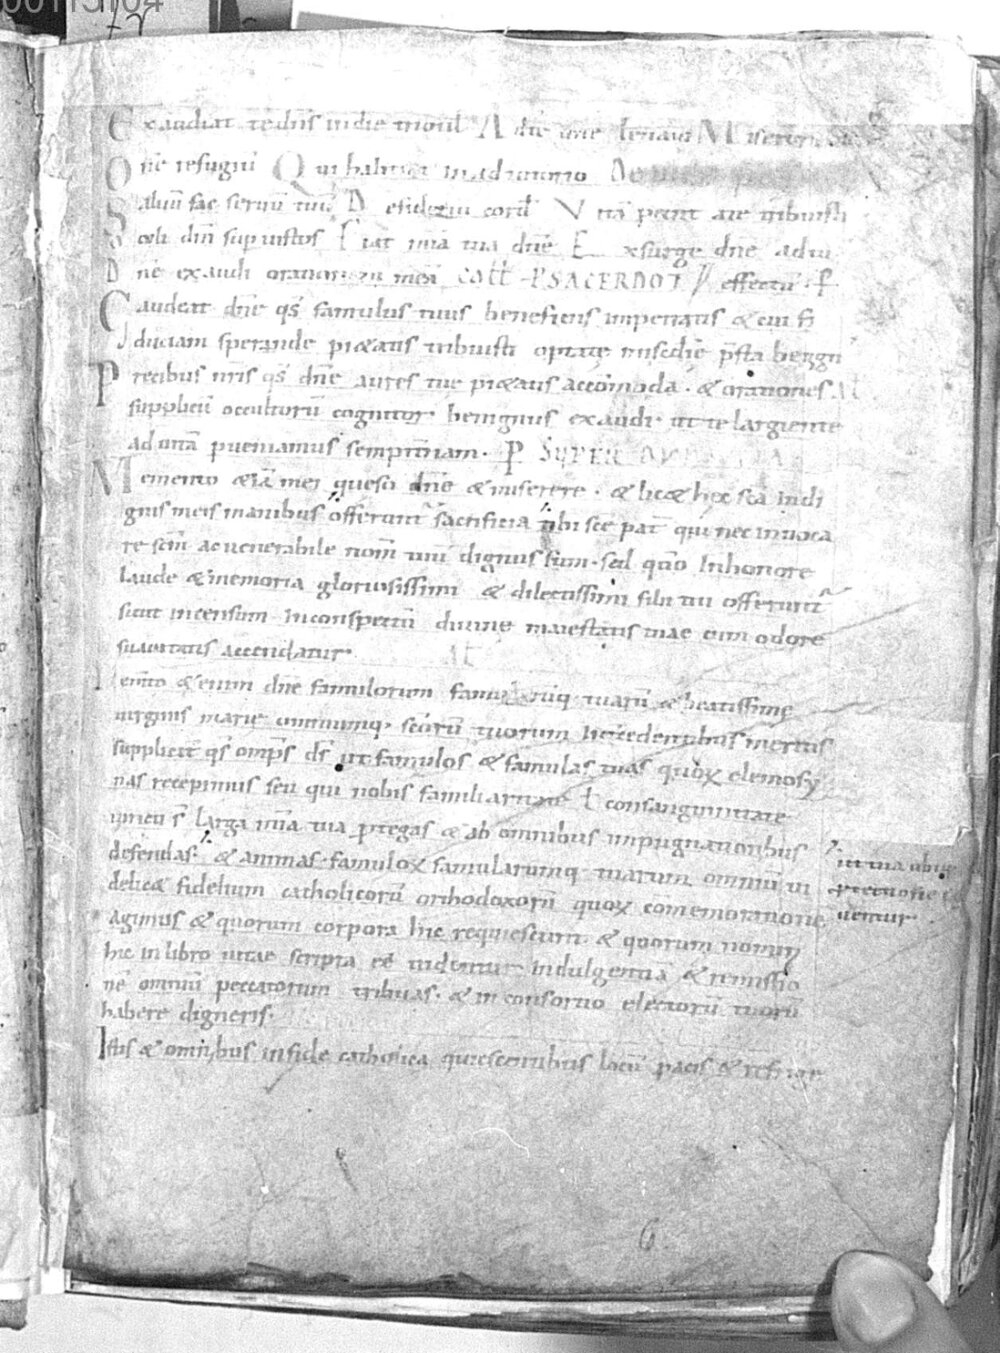 00113104
Exaudiat te dn̄s in die tribul Ad te dn̄e levavi Miserere
Dn̄e refugiū Qui habitat in adiutorio De
Salvū fac servū tuū Desideriū cord Vitā petiit a te tribuisti
celi dn̄i sup istos Fiat mīa tua dn̄e Exsurge dn̄e adiu
Dn̄e exaudi orationem meā Coll P SACERDOT effectū
Gaudeat dn̄e qs̄ famulus tuus beneficiis impetratis & cui fi
duciam sperande pietatis tribuisti optate mis̄cdie p̄sta benign
Precibus nr̄is qs̄ dn̄e aures tue pietatis accōmoda · & orationes
supplicū occultorū cognitor benignus exaudi · ut te largiente
ad vitā pveniamus sempit̄nam · P SUPER
Memento etiā mei queso dn̄e & miserere · & licet hec sc̄a indi
gnis meis manibus offerunt̄ sacrificia tibi sc̄e pat̄ qui nec invoca
re sc̄m ac venerabile nom̄ tuū dignus sum · sed qn̄o in honore
laude & memoria gloriosissimi & dilectissimi filii tui offerunt̄
sicut incensum in conspectū divine maiestatis tuae cum odore
suavitatis accendatur ·
Mem̄to & eium dn̄e famulorum famularūq· tuarū & beatissime
virginis marie omniumq· sc̄orū tuorum intercedentibus meritis
supplicit̄ qs̄ omp̄s ds̄ ut famulos & famulas tuas quoꝝ elemosy
nas recepimus seu qui nobis familiaritate ł consanguinitate
iuncti s̄ larga mīa tua ptegas & ab omnibus impugnationibus
defendas · & animas famuloꝝ famularumq· tuarum omniū vi
delicet fidelium catholicorū orthodoxorū quoꝝ comemoratione
agimus & quorum corpora hic requiescunt · & quorum nomin̄
hic in libro vitae scripta eē videntur indulgentiā & remissio
nē omniū peccatorum tribuas · & in consortio electorū tuorū
habere digneris ·
Istis & omnibus in fide catholica quiescentibus locū pacis & refriger
ut tua ubiq·
ptectione
6